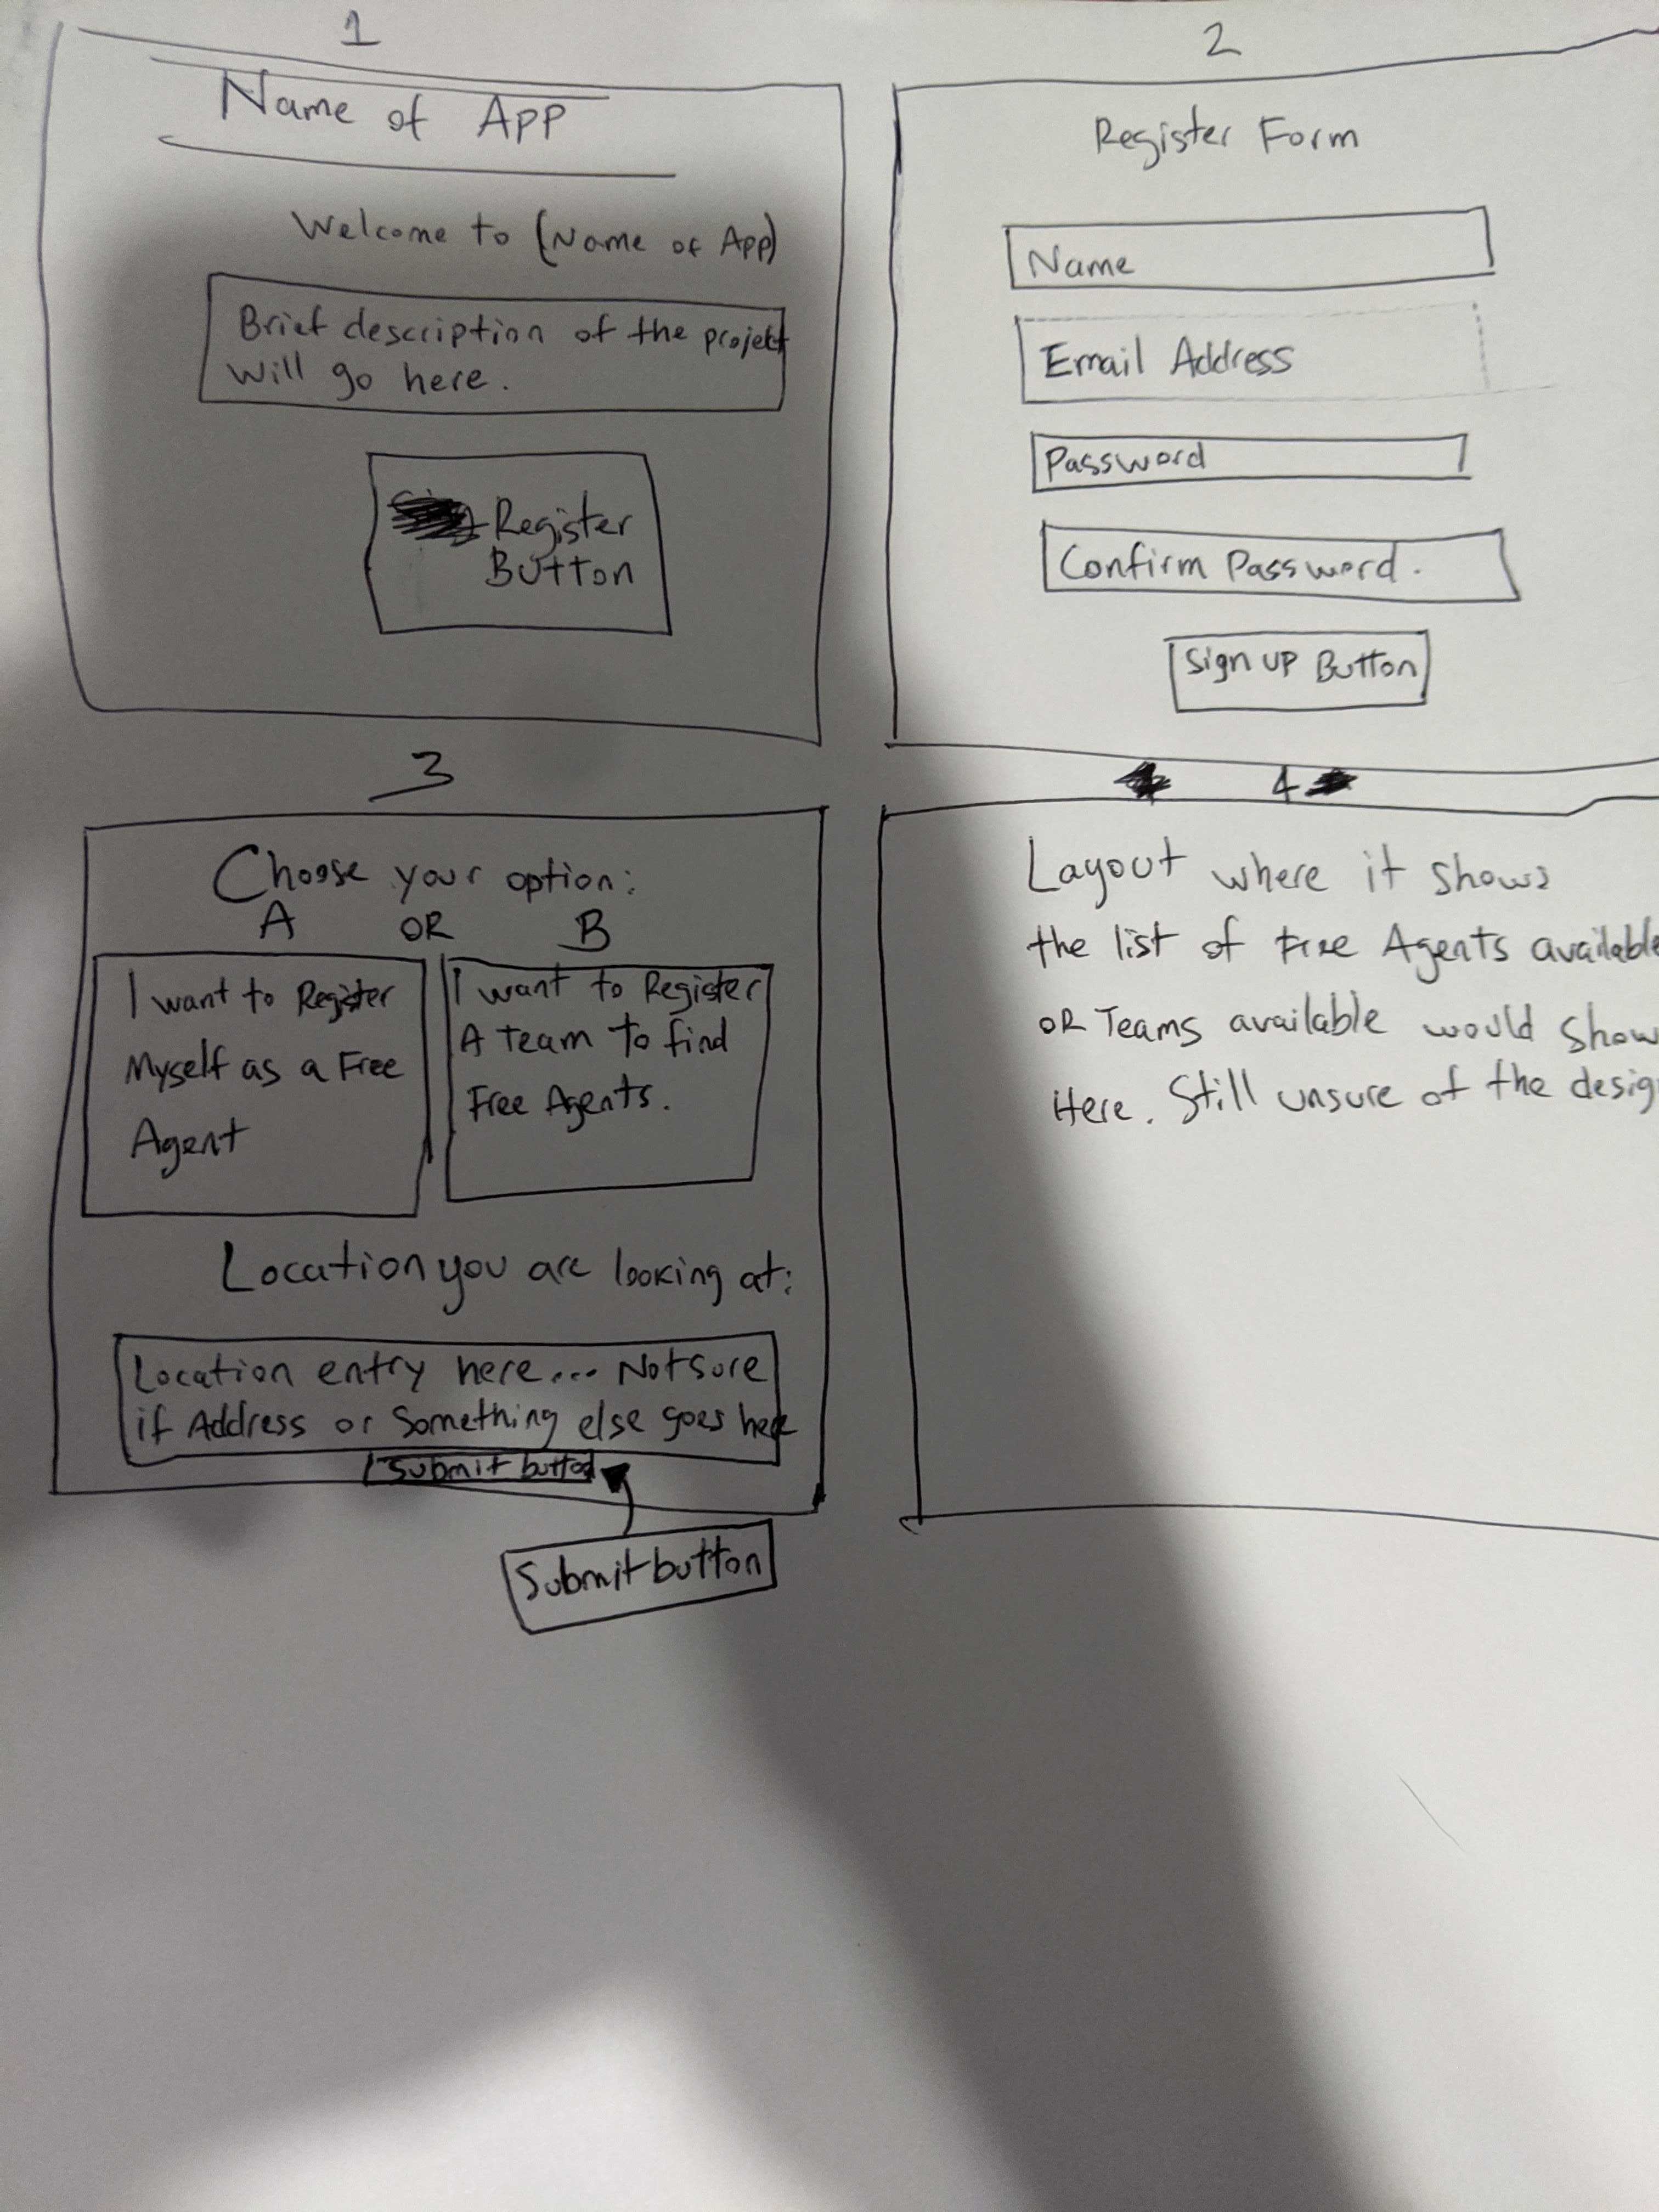 1
Name of App
Welcome to (Name of App)
Brief description of the project
will go here.
Register
Button
2
Register Form
Name
Email Address
Password
Confirm Password.
Sign up Button
3
Choose your option:
A OR B
I want to Register
Myself as a Free
Agent
I want to Register
A Team to find
Free Agents.
Location you are looking at:
Location entry here... Not sure
if Address or Something else goes here
Submit button
Submit button
4
Layout where it shows
the list of Free Agents available
OR Teams available would show
Here. Still unsure of the